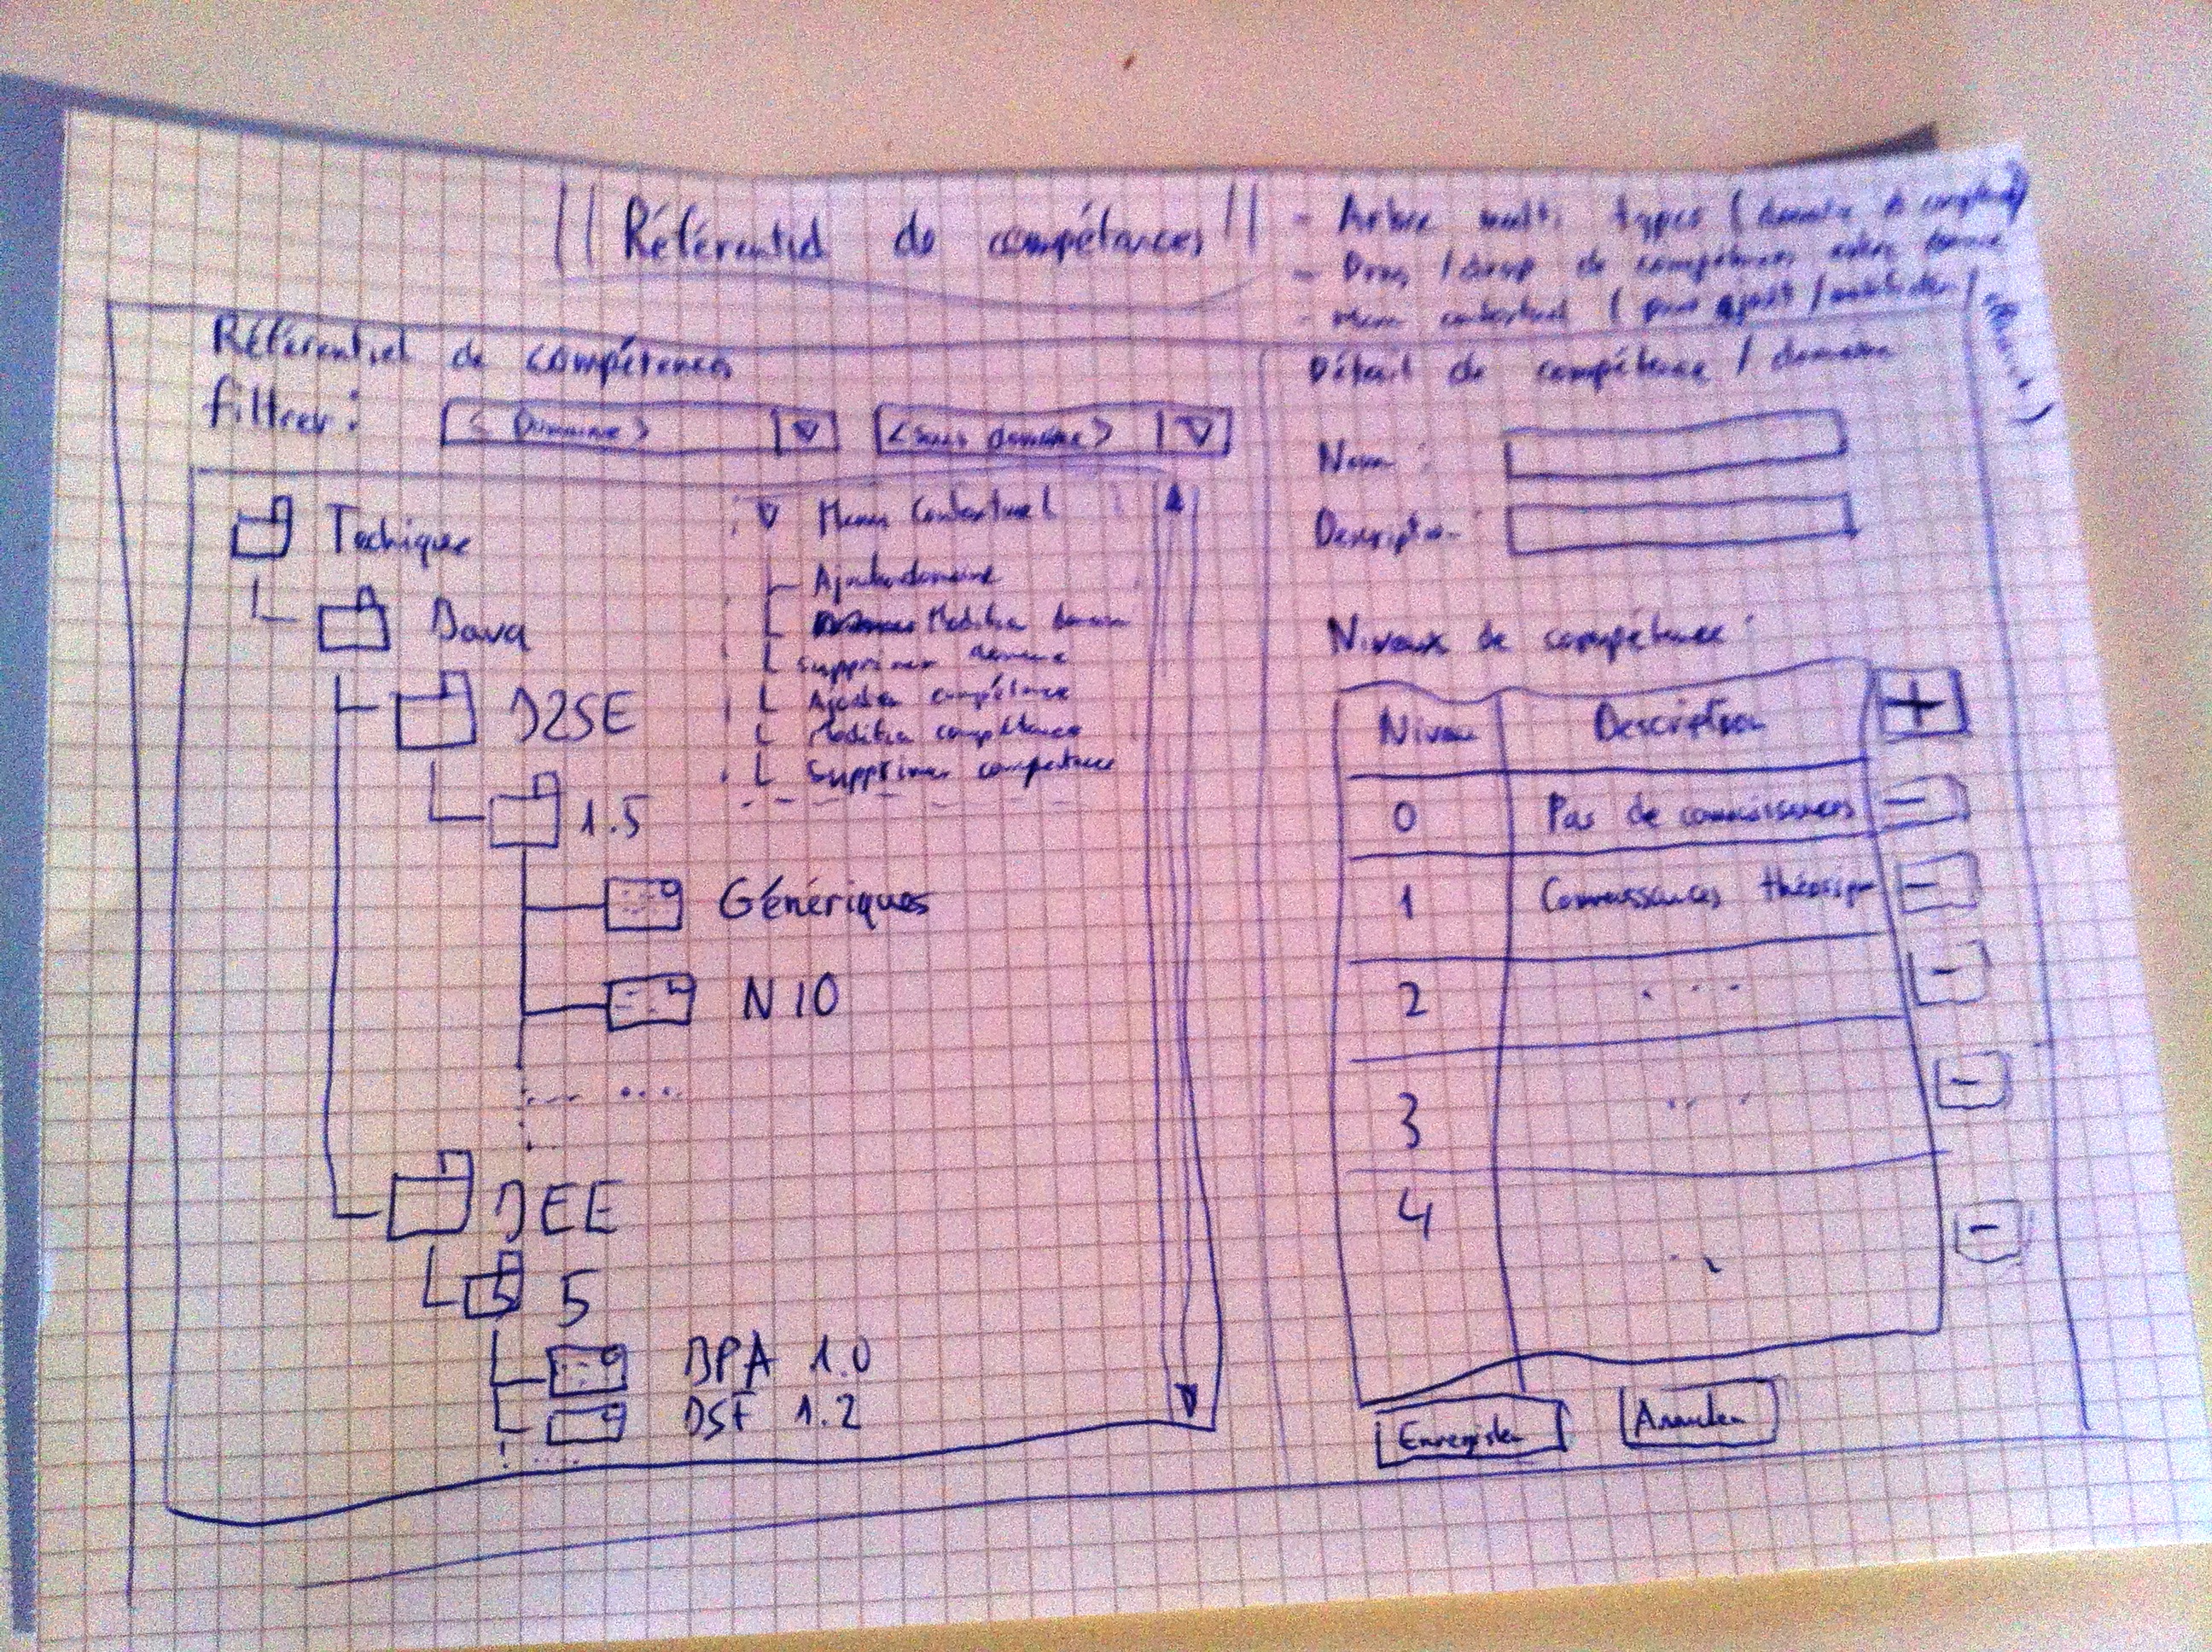 Référentiel de compétences
- Arbre multi types (domaine de compétence)
- Drag / drop de compétences entre domaine
- Menu contextuel ( pour ajout / modification /
Référentiel de compétences
filtrer :
< Domaine >
<sous domaine>
Techique
Java
J2SE
1.5
Génériques
NIO
....
JEE
5
JPA 1.0
JSF 1.2
Menu Contextuel
Ajouter domaine
Modifier domaine
Supprimer domaine
Ajouter compétence
Modifier compétence
Supprimer compétence
Détail de compétence / domaine
Nom :
Description :
Niveaux de compétence :
Niveau Description
+
0 Pas de connaissances -
1 Connaissances théoriques -
2 . . . . -
3 . . . -
4 -
Enregistrer Annuler